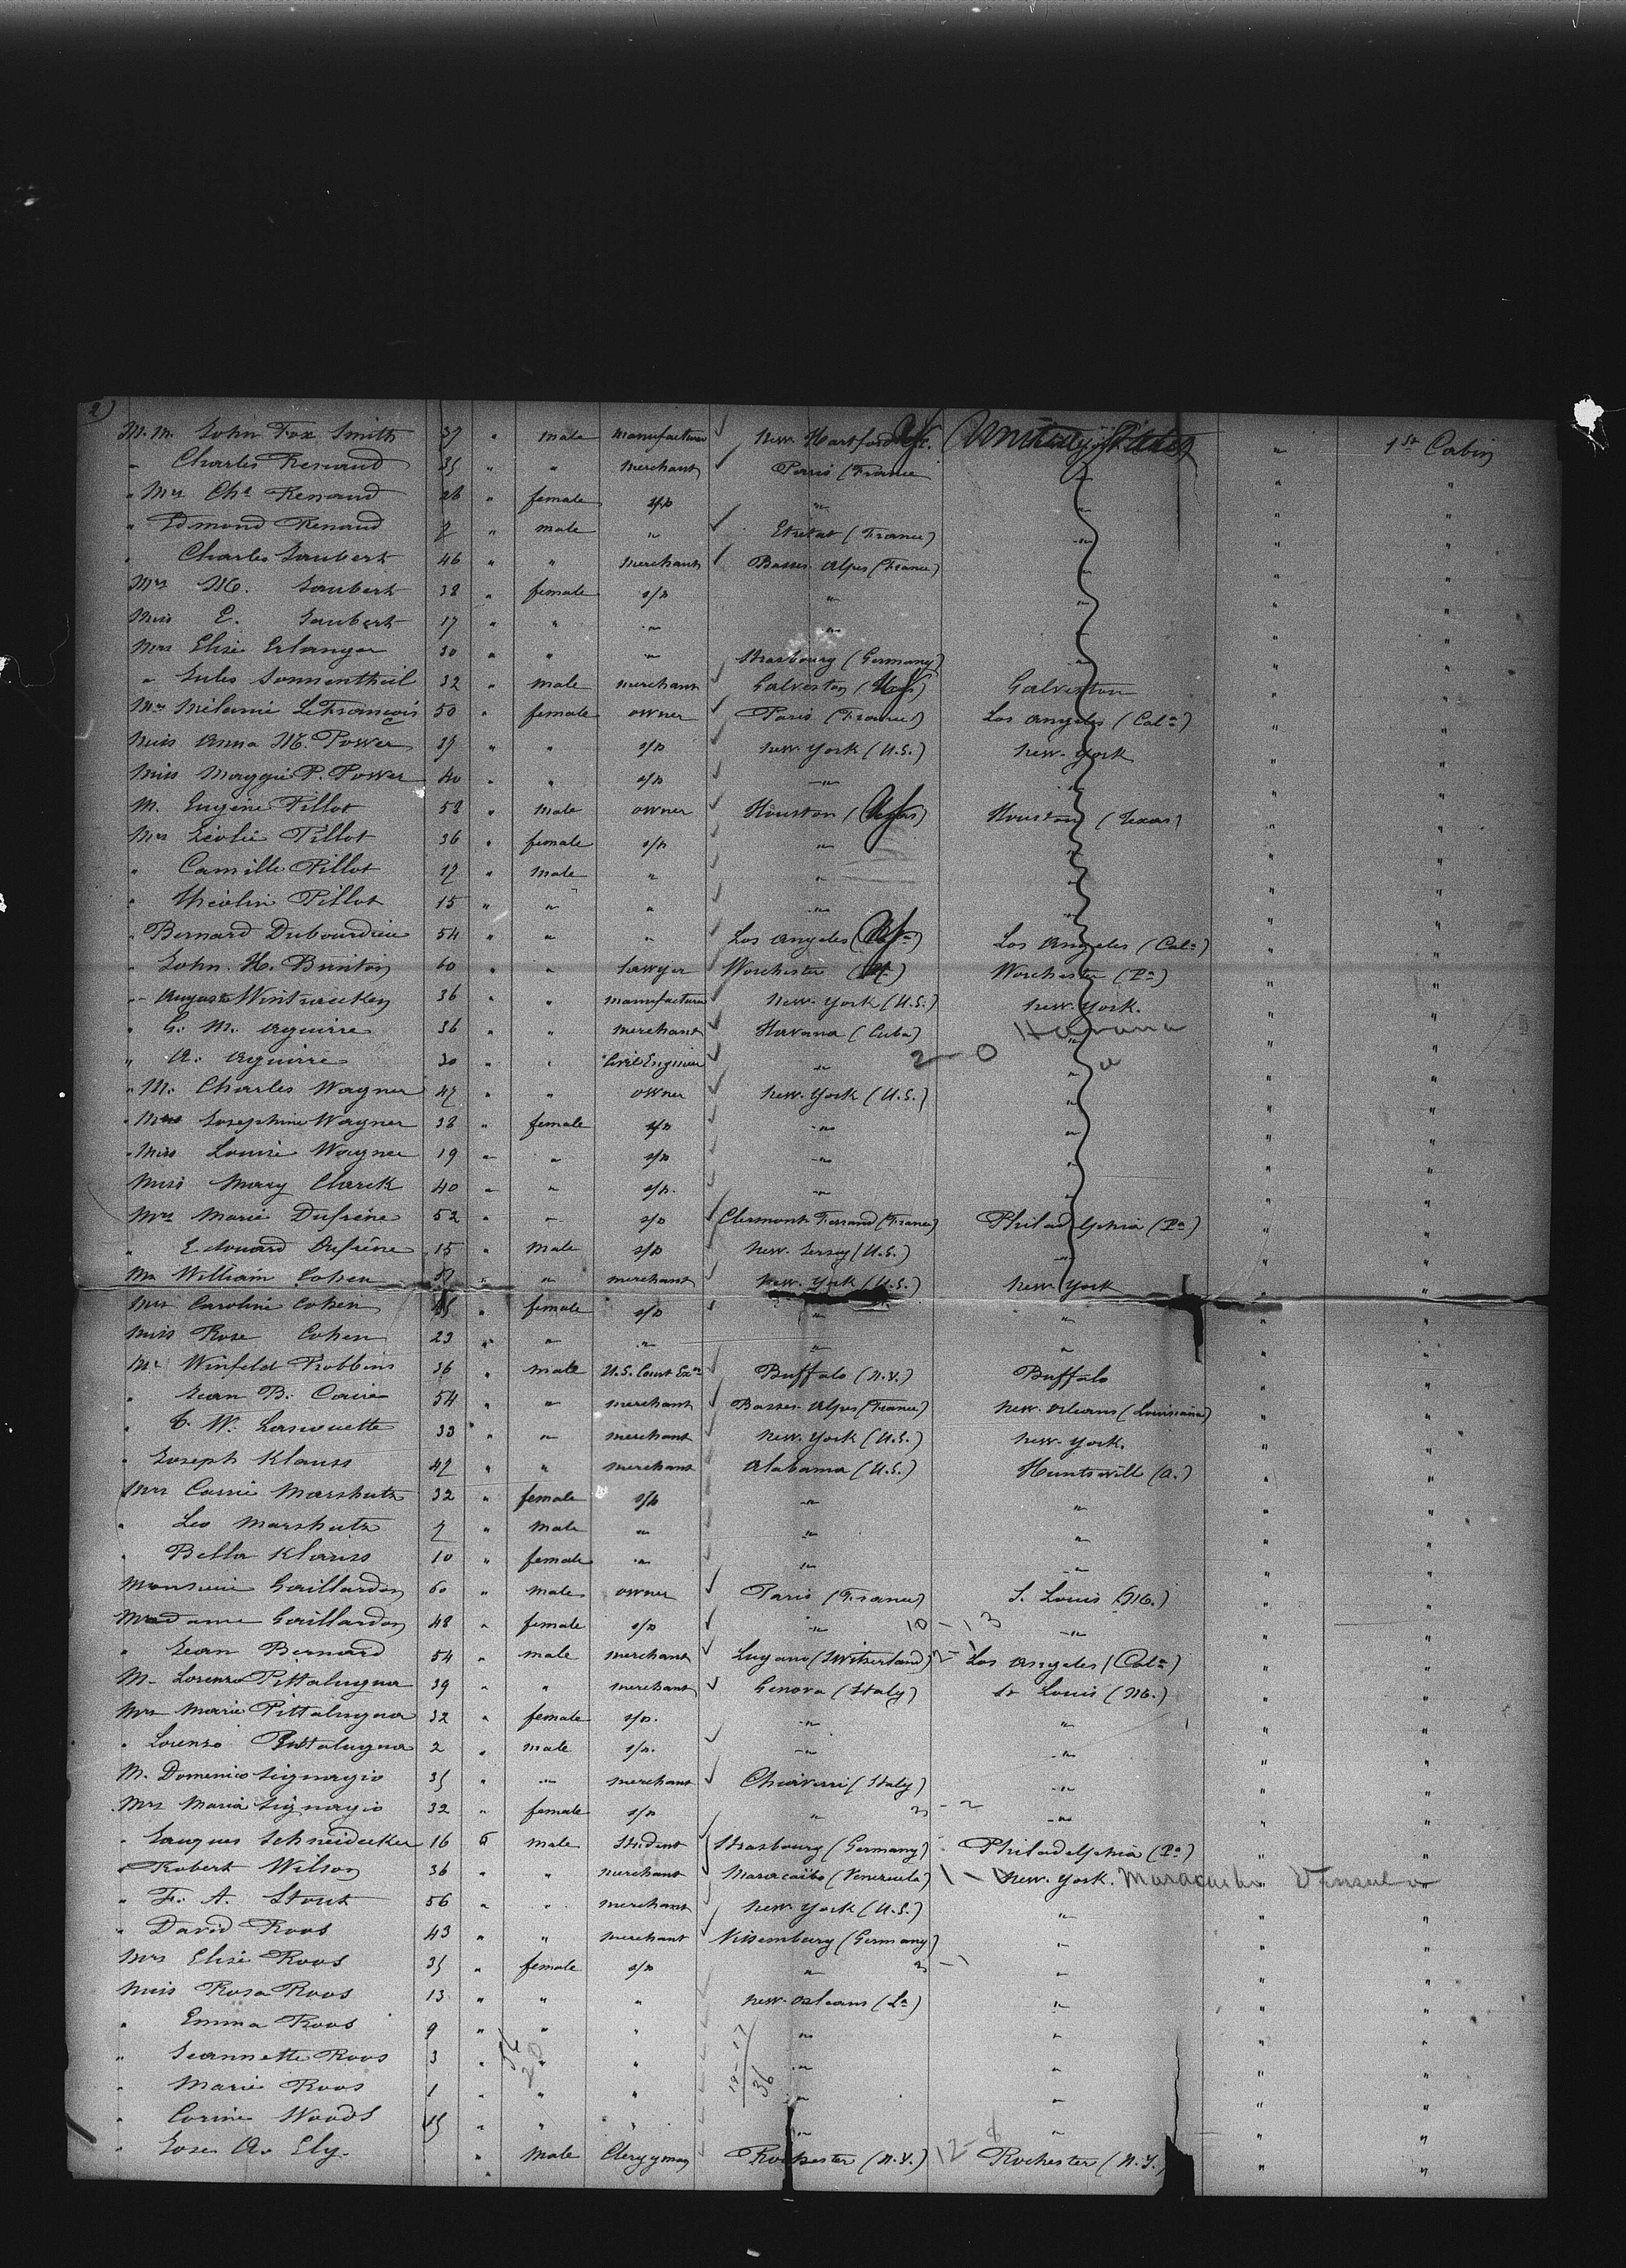 2)
M. M. John Fox Smith 37 " male manufacturer New Hartford United States " 1st Cabin
" Charles Renaud 35 " " merchant Paris (France " " "
" Mrs Chs Renaud 26 " female s/p " " " "
" Edmond Renaud 7 " male " Etretat (France) " " "
" Charles Jaubert 46 " " merchant Basses Alpes (France) " " "
Mrs M. Jaubert 38 " female s/p " " " "
Miss E. Jaubert 17 " " " " " " "
Mrs Elise Erlanger 30 " " " Strasbourg (Germany) " " "
" Jules Sonnentheil 32 " male merchant Galveston Galveston " "
Mrs Mélanie LeFrançois 50 " female owner Paris (France) Los Angeles (Cala) " "
Miss Anna M. Power 39 " " s/p New-York (U.S.) New-York " "
Miss Maggie P. Power 40 " " s/p " " " "
M. Eugène Pillot 58 " male owner Houston Houston (Texas) " "
Mrs Zéolie Pillot 36 " female s/p " " " "
" Camille Pillot 17 " male " " " " "
" Théolin Pillot 15 " " " " " " "
" Bernard Dubourdieu 54 " " " Los Angeles Los Angeles (Cala) " "
" John H. Brinton 60 " " Lawyer Worchester Worchester (Pa) " "
" Auguste 36 " " manufacturer New-York (U.S.) New-York. " "
" G. M. Aguirre 36 " " merchant Havana (Cuba) 2-0 Havana " " "
" A. Aguirre 30 " " Civil Engineer " " " "
" M. Charles Wagner 47 " " owner New-York (U.S.) " " "
" Mrs Josephine Wagner 38 " female s/p " " " "
" Miss Louise Wagner 19 " " s/p " " " "
Miss Mary Clarck 40 " " s/p. " " " "
Mrs Marie Dufrêne 52 " " s/p Clermont Ferrand (France) Philadelphia (Pa) " "
" Edouard Dufrêne 15 " male s/p New-Jersey (U.S.) " " "
Mr William Cohen " " merchant New-York (U.S.) New York " "
Mrs Caroline Cohen 45 " female s/p " " " "
Miss Rose Cohen 23 " " " " " " "
Mr Winfield Robbins 36 " male U.S. Court Exer Buffalo (N.Y.) Buffalo " "
" Jean B. Caire 54 " " merchant Basses Alpes (France) New-Orleans (Louisiana) " "
" C. W. 33 " " merchant New-York (U.S.) New-York. " "
" Joseph Klauss 47 " " merchant Alabama (U.S.) Huntsvill (A.) " "
Mrs Carrie Marshutz 32 " female s/p " " " "
" Leo Marshutz 7 " male " " " " "
" Bella Klauss 10 " female " " " " "
Monsieur Gaillardon 60 " male owner Paris (France) S. Louis (Mo.) " "
Madame Gaillardon 48 " female s/p " 10-13 " " "
" Jean Bernard 54 " male merchant Lugano (Switzerland) Los Angeles (Cala) " "
M. Lorenzo Pittaluguo 39 " " merchant Genova (Italy) St Louis (Mo.) " "
Mrs Marie Pittaluguo 32 " female s/p. " " " "
" Lorenzo Pittaluguo 2 " male s/p. " " " "
M. Domenico Signagio 35 " " merchant Chiaveri (Italy) " " "
Mrs Maria Signagio 32 " female s/p " " " "
" Jacques Schneidecker 16 6 male Student Strasbourg (Germany) Philadelphia (Pa) " "
" Robert Wilson 36 " " merchant Maracaibo (Venezuela) New-York. Maracaibo "
" F. A. Stout 56 " " merchant New York (U.S.) " " "
" David Roos 43 " " merchant Nissemburg (Germany) " " "
Mrs Elise Roos 35 " female s/p " " " "
Miss Rosa Roos 13 " " " New-Orleans (La) " " "
" Emma Roos 9 " " " " " " "
" Jeannette Roos 3 " " " " " " "
" Marie Roos 1 " " " " " " "
" Corine Woods " " " " " " "
" A. Ely. " male Clergyman Rochester (N.Y.) 12-8 Rochester (N.Y.) " "
19-17
36